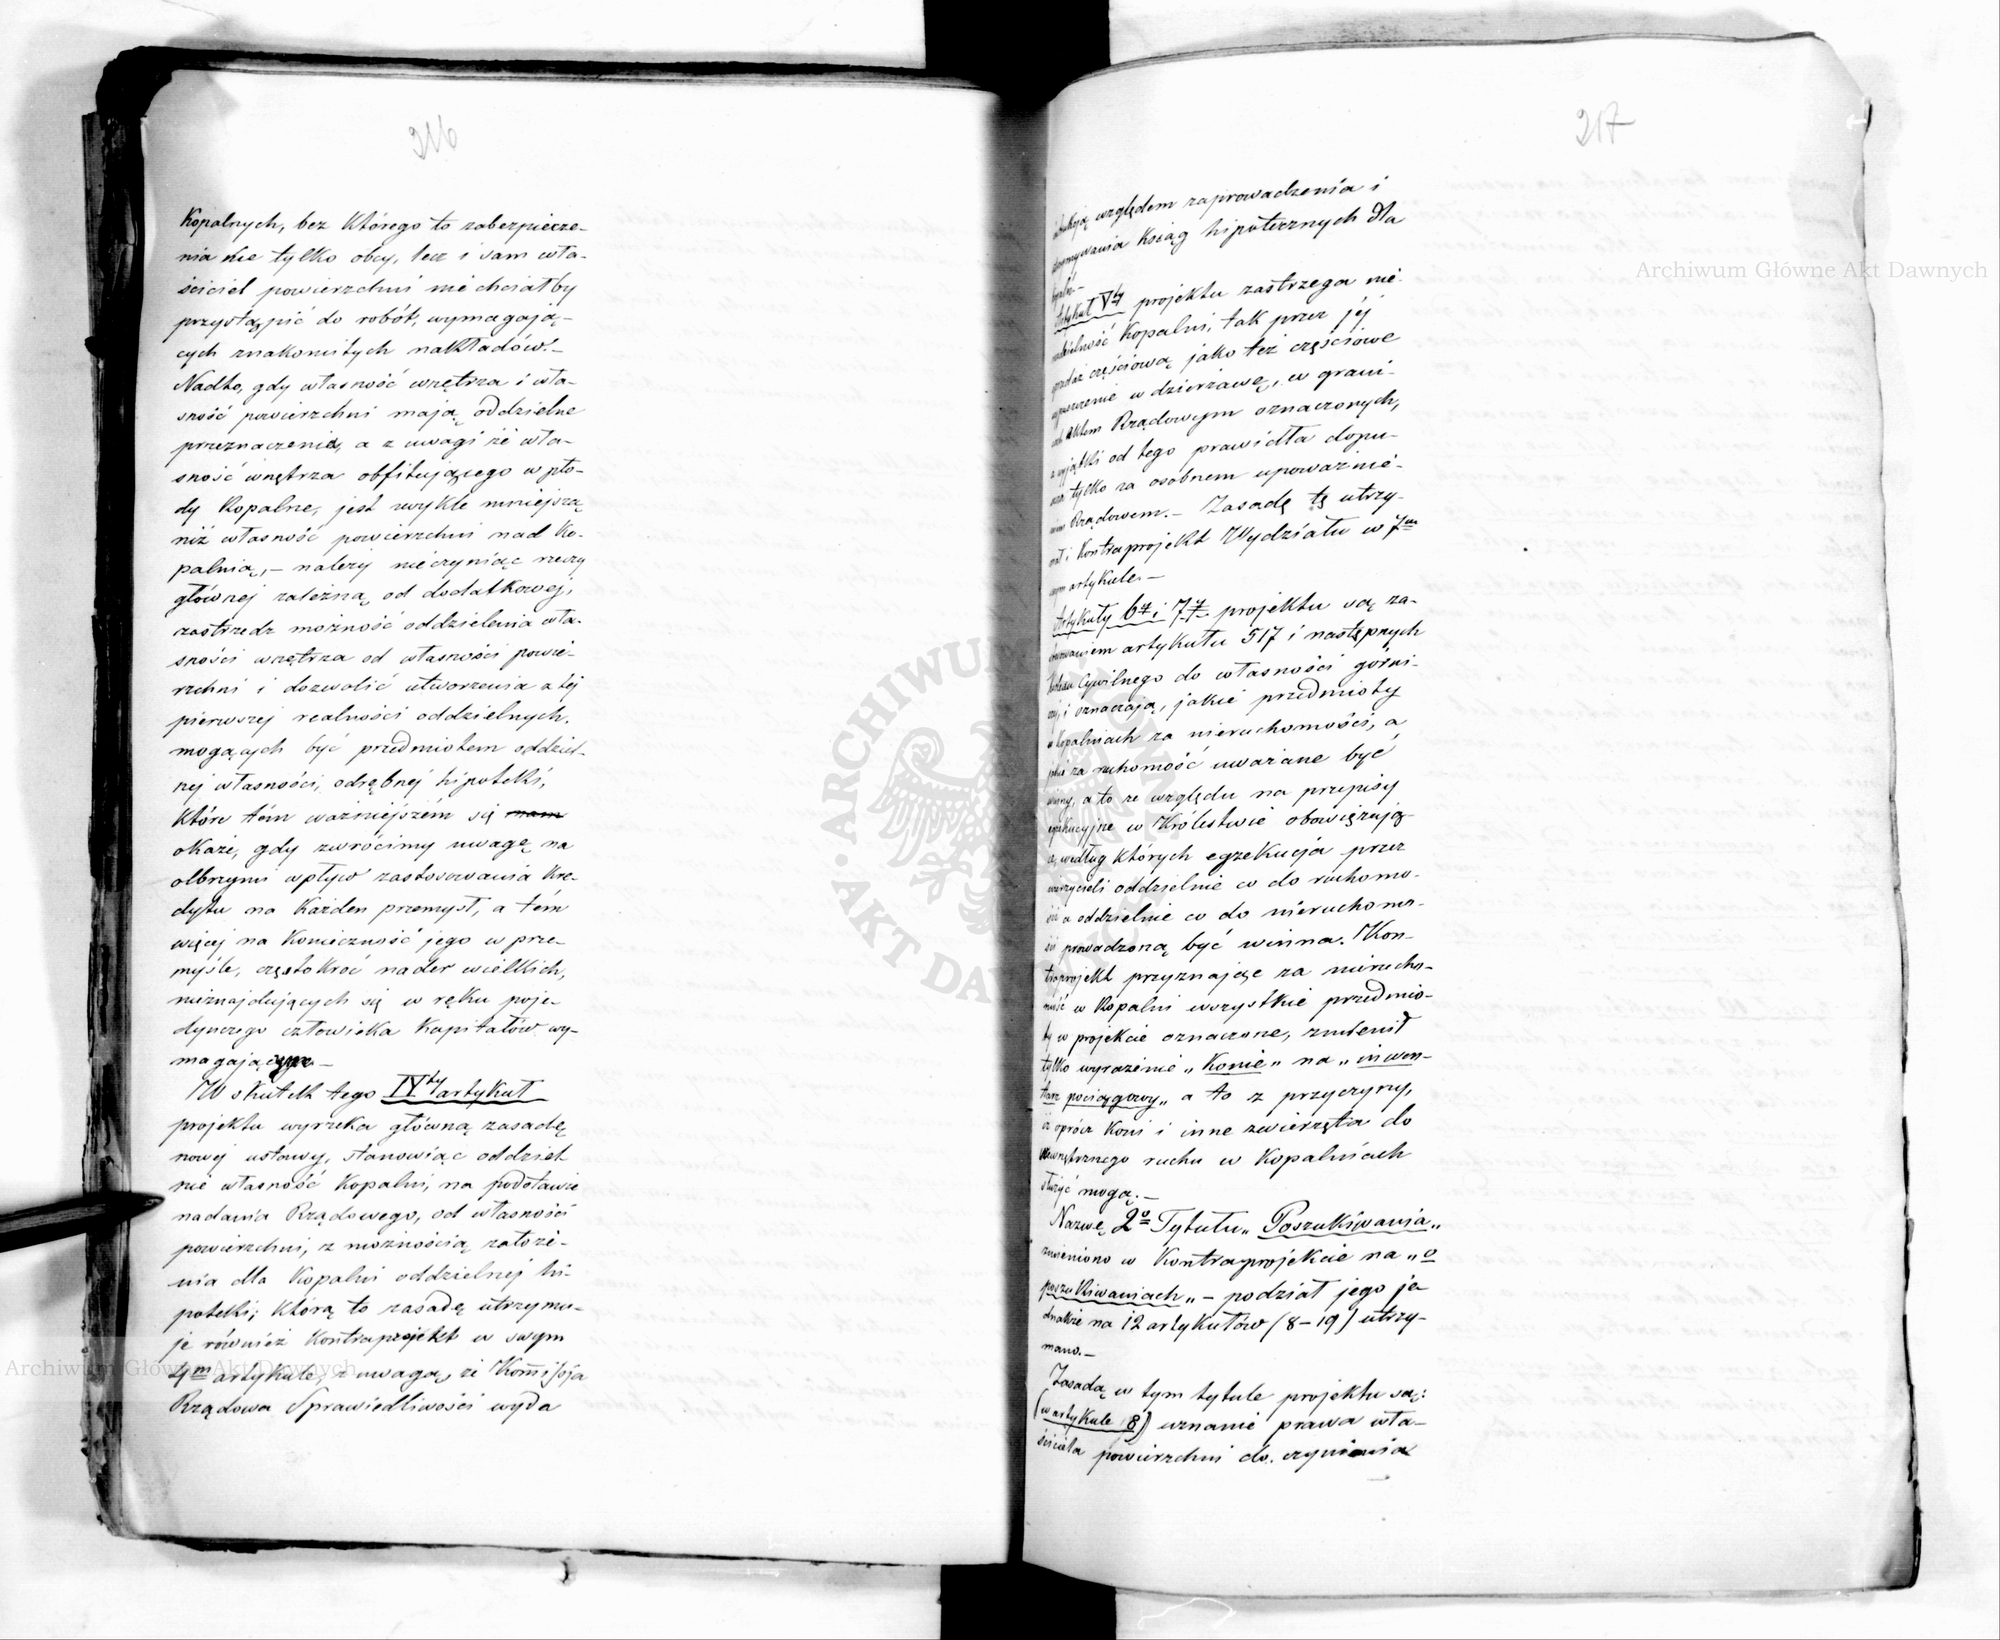 216
Kopalnych, bez którego to zabezpiecze-
nia nie tylko obcy, lecz i sam wła-
ściciel powierzchni nie chciałby
przystąpić do robót, wymagają-
cych znakomitych nakładów.-
Nadto, gdy własność wnętrza i wła-
sność powierzchni mają oddzielne
przeznaczenia, a z uwagi że wła-
sność wnętrza obfitującego w pło-
dy kopalne, jest zwykle mniejszą
niż własność powierzchni nad ko-
palnią, - należy nieczyniąc rzeczy
głównej zależną od dodatkowej,
zastrzedz możność oddzielenia wła-
sności wnętrza od własności powie-
rzchni i dozwolić utworzenia z tej
pierwszej realności oddzielnych,
mogących być przedmiotem oddziel-
nej własności, odrębnej hipoteki,
które tém ważniejszém się
okaże, gdy zwrócimy uwagę na
olbrzymi wpływ zastosowania kre-
dytu na każden przemysł, a tém
więcej na konieczność jego w prze-
myśle, częstokroć nader wielkich,
nieznajdujących się w ręku poje-
dynczego człowieka kapitałów wy-
magającym -
W skutek tego IVty artykuł
projektu wyrzeka główną zasadę
nowej ustawy, stanowiąc oddziel
nie własność kopalni, na podstawie
nadania Rządowego, od własności
powierzchni, z możnością założe-
nia dla kopalni oddzielnej hi-
poteki; którą to zasadę utrzymu-
je również kontraprojekt w swym
4m artykule, z uwagą, że Kommissja
Rządowa Sprawiedliwości wyda
217
względem zaprowadzenia i
utrzymywania ksiąg hipotecznych dla
kopalń.-
Artykuł Vty projektu zastrzega nie-
podzielność kopalni, tak przez jéj
sprzedaż częściową jako też częściowe
wypuszczenie w dzierżawę, w grani-
cach Aktem Rządowym oznaczonych,
a wyjątki od tego prawidła dopu-
szcza tylko za osobnem upoważnie-
niem Rządowem.- Zasadę tę utrzy-
mał i kontraprojekt Wydziału w 7m
swym artykule.-
Artykuły 6ty i 7y projektu są za-
stosowaniem artykułu 517 i następnych
Kodexu Cywilnego do własności górni-
czej, i oznaczają, jakie przedmioty
w kopalniach za nieruchomości, a
jakie za ruchomość uważane być
winny, a to ze względu na przepisy
egzekucyjne w Królestwie obowiązują-
ce, według których egzekucja przez
wierzycieli oddzielnie co do ruchomo-
ści a oddzielnie co do nieruchomo-
ści prowadzoną być winna. Kon-
traprojekt przyznając za nierucho-
mość w kopalni wszystkie przedmio-
ty w projekcie oznaczone, zmienił
tylko wyrażenie „Konie" na „inwen-
tarz pociągowy„ a to z przyczyny,
iż oprócz koni i inne zwierzęta do
wewnętrznego ruchu w kopalniach
służyć mogą.-
Nazwę 2o Tytułu „Poszukiwania„
zmieniono w kontraprojekcie na „o
poszukiwaniach„ - podział jego je-
dnakże na 12 artykułów (8-19) utrzy-
mano.-
Zasadą w tym tytule projektu są:
(w artykule 8) uznanie prawa wła-
ściciela powierzchni do czynienia
Archiwum Główne Akt Dawnych
Archiwum Główne Akt Dawnych